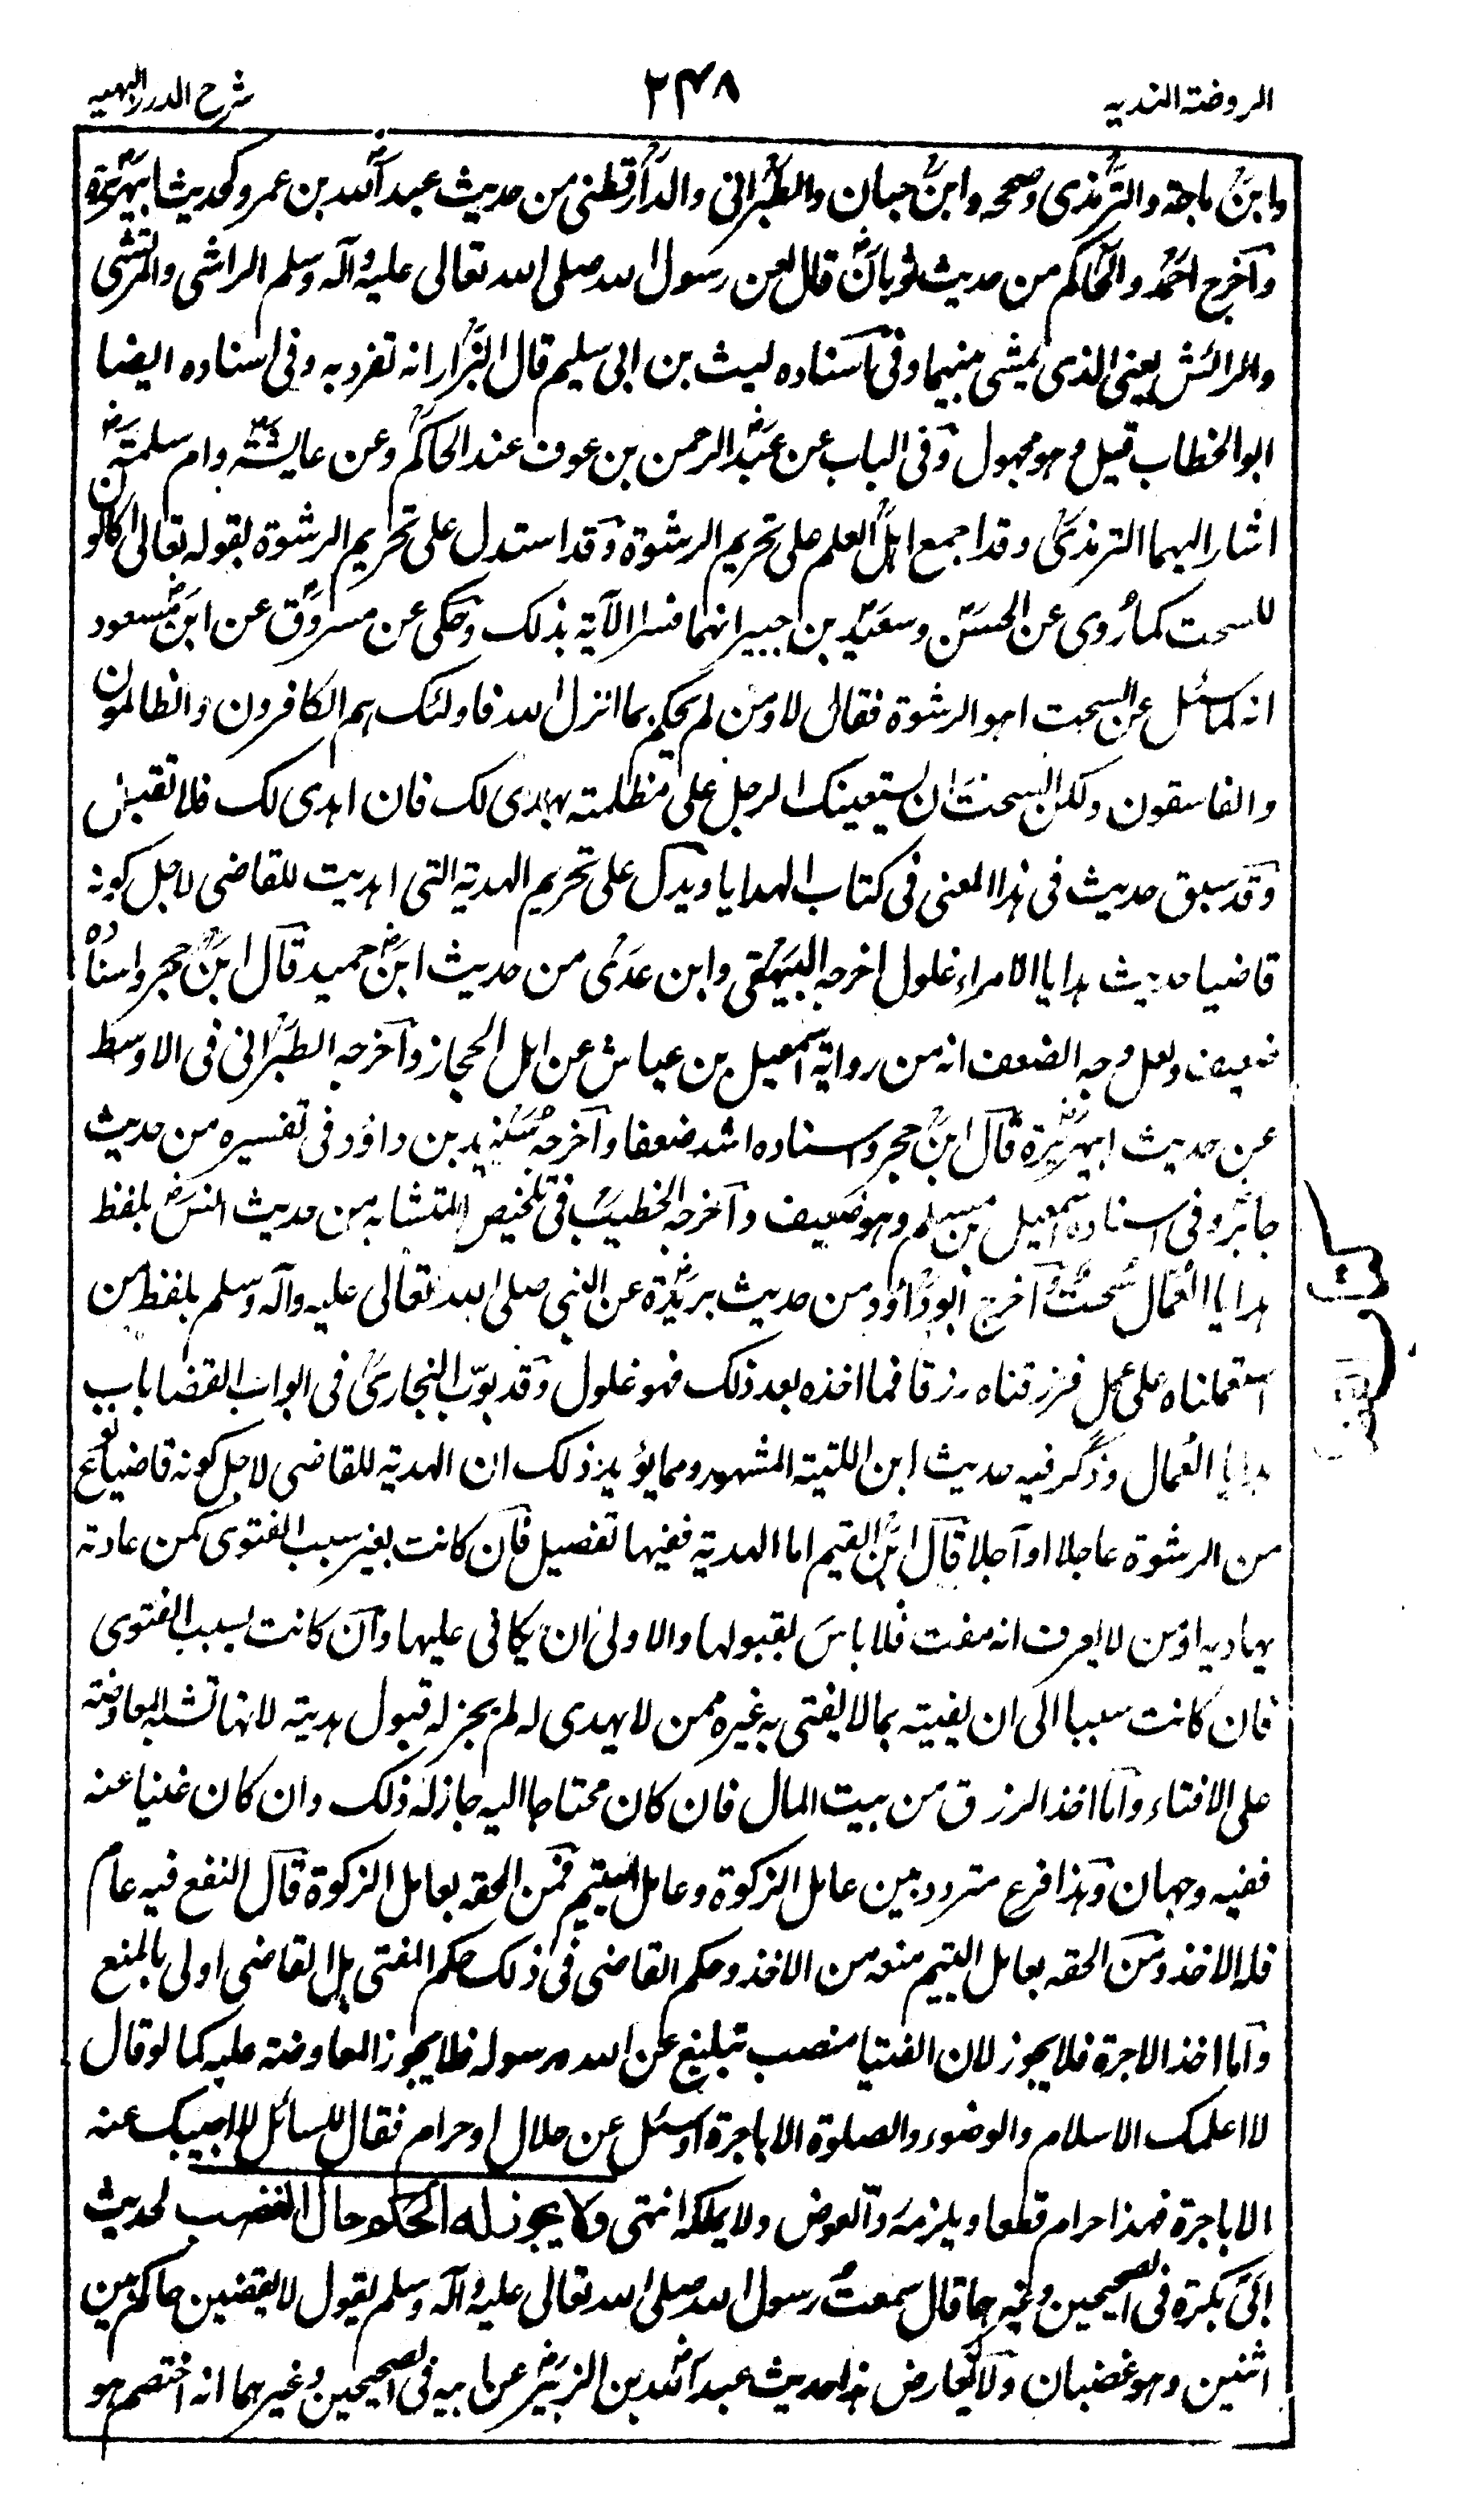 الروضة الندیه ٢٤٨ شرح الدرر البهیه
وابن ماجة والترمذی وصححه وابن حبان والطبرانی والدارقطنی من حدیث عبد الله بن عمرو کحدیث ابیهریرة
وآخرج احمد والحاکم من حدیث ثوبان قال لعن رسول الله صلی الله تعالی علیه وآله وسلم الراشی والمرتشی
والرائش یعنی الذی یمشی بینهما وفی اسناده لیث بن ابی سلیم قال البزار انه تفرد به وفی اسناده ایضا
ابو الخطاب قیل وهو مجهول وفی الباب عن عبد الرحمن بن عوف عند الحاکم وعن عایشة وام سلمة
اشار الیهما الترمذی وقد اجمع اهل العلم علی تحریم الرشوة وقد استدل علی تحریم الرشوة بقوله تعالی اکالون
للسحت کما روی عن الحسن وسعید بن جبیر انهما فسرا الآیة بذلک وحکی عن مسروق عن ابن مسعود
انه لما سئل عن السحت اهو الرشوة فقال لا ومن لم یحکم بما انزل الله فاولئک هم الکافرون والظالمون
والفاسقون ولکن السحت ان یستعینک الرجل علی مظلمته یهدی لک فان اهدی لک فلا تقبل
وقد سبق حدیث فی هذا المعنی فی کتاب الهدایا ویدل علی تحریم الهدیة التی اهدیت للقاضی لاجل کونه
قاضیا حدیث هدایا الامراء غلول اخرجه البیهقی وابن عدی من حدیث ابن حمید قال ابن حجر واسناده
ضعیف ولعل وجه الضعف انه من روایة اسمعیل بن عیاش عن اهل الحجاز وآخرجه الطبرانی فی الاوسط
عن حدیث ابیهریرة قال ابن حجر واسناده اشد ضعفا وآخرجه سنید بن داؤد فی تفسیره من حدیث
جابر وفی اسناده اسمعیل بن مسلم وهو ضعیف وآخرجه الخطیب فی تلخیص المتشابه من حدیث انس بلفظ
هدایا العمال سحت وآخرج ابو داؤد من حدیث بریدة عن النبی صلی الله تعالی علیه وآله وسلم بلفظ من
استعملناه علی عمل فرزقناه رزقا فما اخذه بعد ذلک فهو غلول وقد بوب البخاری فی ابواب القضا باب
هدایا العمال وذکر فیه حدیث ابن اللتبیة المشهور ومما یؤید ذلک ان الهدیة للقاضی لاجل کونه قاضیا نوع
من الرشوة عاجلا او آجلا قال ابن القیم اما الهدیة ففیها تفصیل فان کانت بغیر سبب الفتوی کمن عادته
یهادیه او من لا یعرف انه مفت فلا باس بقبولها والاولی ان یکافی علیها وان کانت بسبب الفتوی
فان کانت سببا الی ان یفتیه بما لا یفتی به غیره ممن لا یهدی له لم یجز له قبول هدیته لانها تشبه المعاوضة
علی الافتاء واما اخذ الرزق من بیت المال فان کان محتاجا الیه جاز له ذلک وان کان غنیا عنه
ففیه وجهان وهذا فرع متردد بین عامل الزکوة وعامل الیتیم فمن الحقه بعامل الزکوة قال النفع فیه عام
فله الاخذ ومن الحقه بعامل الیتیم منعه من الاخذ وحکم القاضی فی ذلک حکم المفتی بل القاضی اولی بالمنع
واما اخذ الاجرة فلا یجوز لان الفتیا منصب تبلیغ عن الله ورسوله فلا یجوز المعاوضة علیه کما لو قال
لا اعلمک الاسلام والوضوء والصلوة الا باجرة او سئل عن حلال او حرام فقال للسائل لا اجیبک عنه
الا باجرة فهذا حرام قطعا ویلزمه رد العوض ولا یملکه انتهی ولا یجوز له الحکم حال الغضب لحدیث
ابی بکرة فی الصحیحین وغیرهما قال سمعت رسول الله صلی الله تعالی علیه وآله وسلم یقول لا یقضین حاکم بین
اثنین وهو غضبان ولا یعارض هذا حدیث عبد الله بن الزبیر عن ابیه فی الصحیحین وغیرهما انه اختصم هو